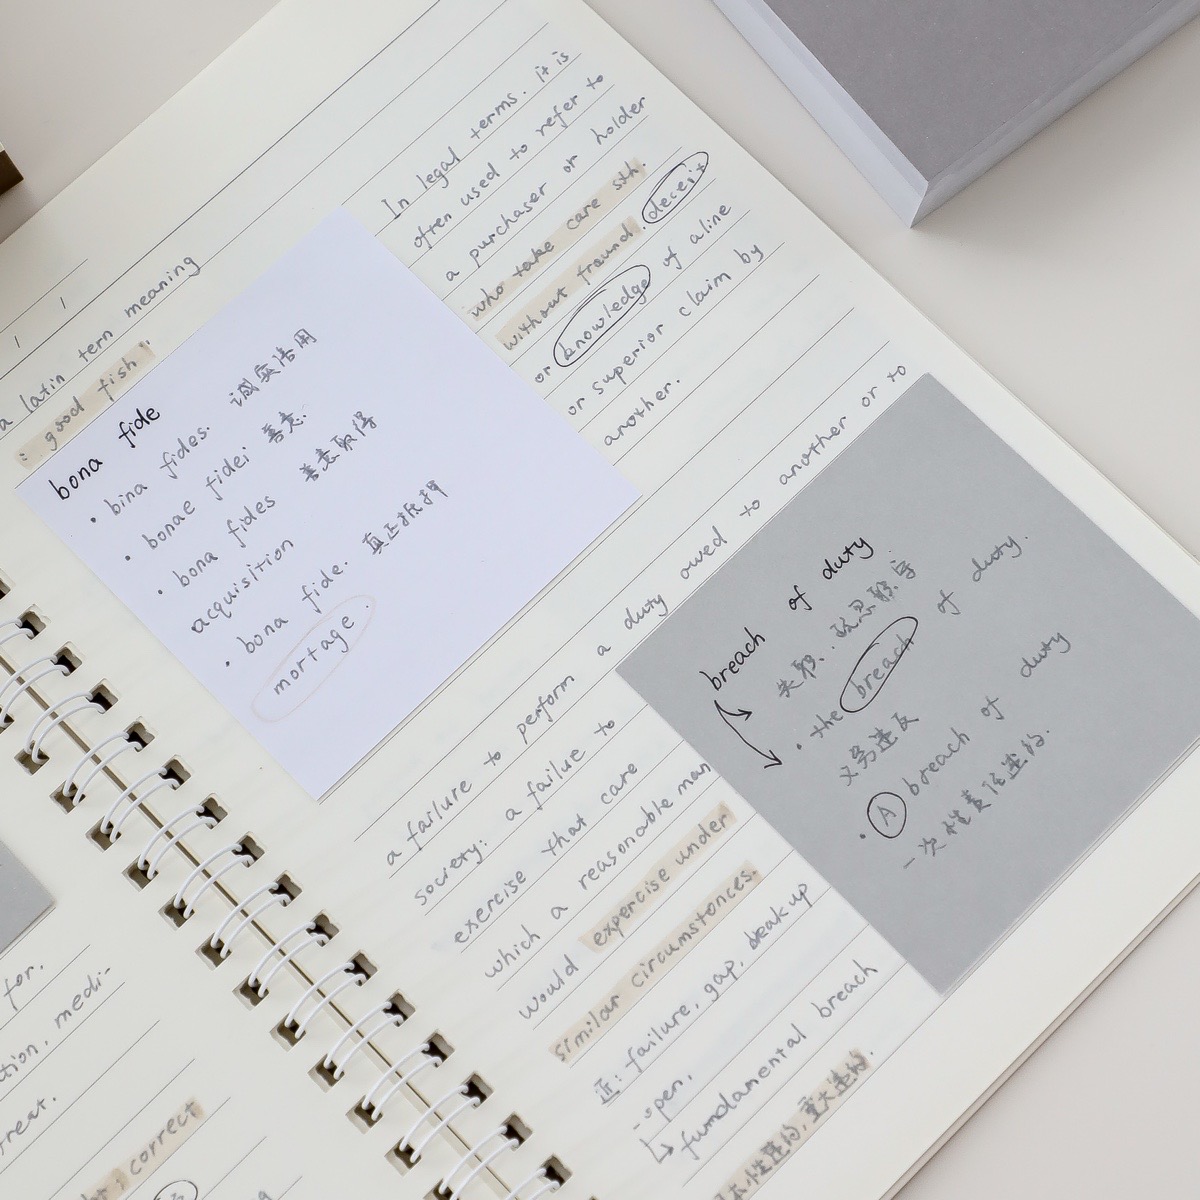 a latin tern meaning
: good fish"
bona fide
• bina fides. 诚实信用
• bonae fidei 善意.
• bona fides 善意取得
acquisition
• bona fide. 真正抵押
mortage.
In legal terms. it is
often used to refer to
a purchaser or holder
who take care sth.
without fraund. deceit
or knowledge of a line
or superior claim by
another.
a failure to perform a duty owed to another or to
society: a failue to
exercise that care
which a reasonable man
would expercise under
similar circumstances.
近: failure, gap, break up
open.
↳ fumdamental breach
本性违约, 重大违约.
breach of duty
失职.
• the breach of duty.
义务违反
• A breach of duty
一次性责任违约.
for.
tion, medi-
treat.
correct